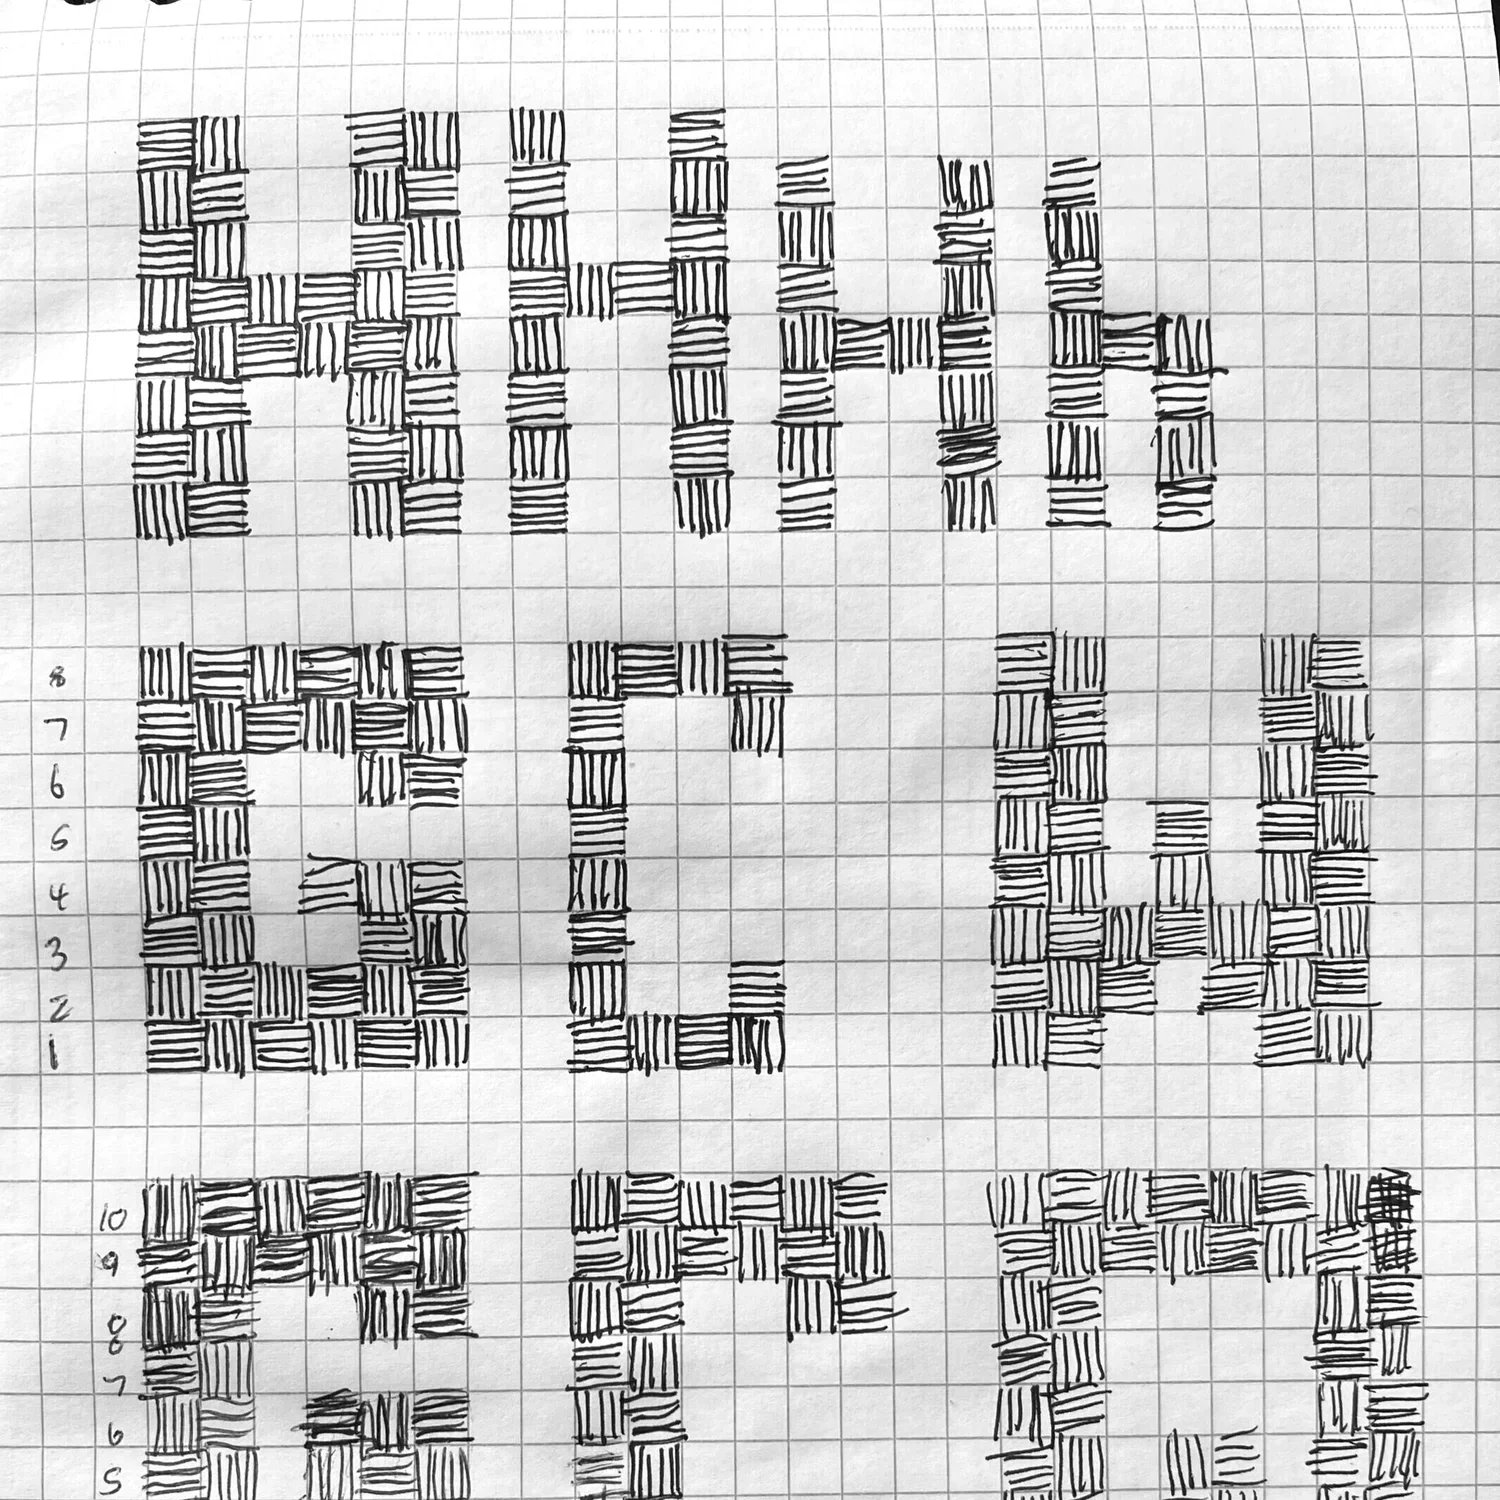 H H H h
G C W
8
7
6
5
4
3
2
1
G
10
9
8
7
6
5